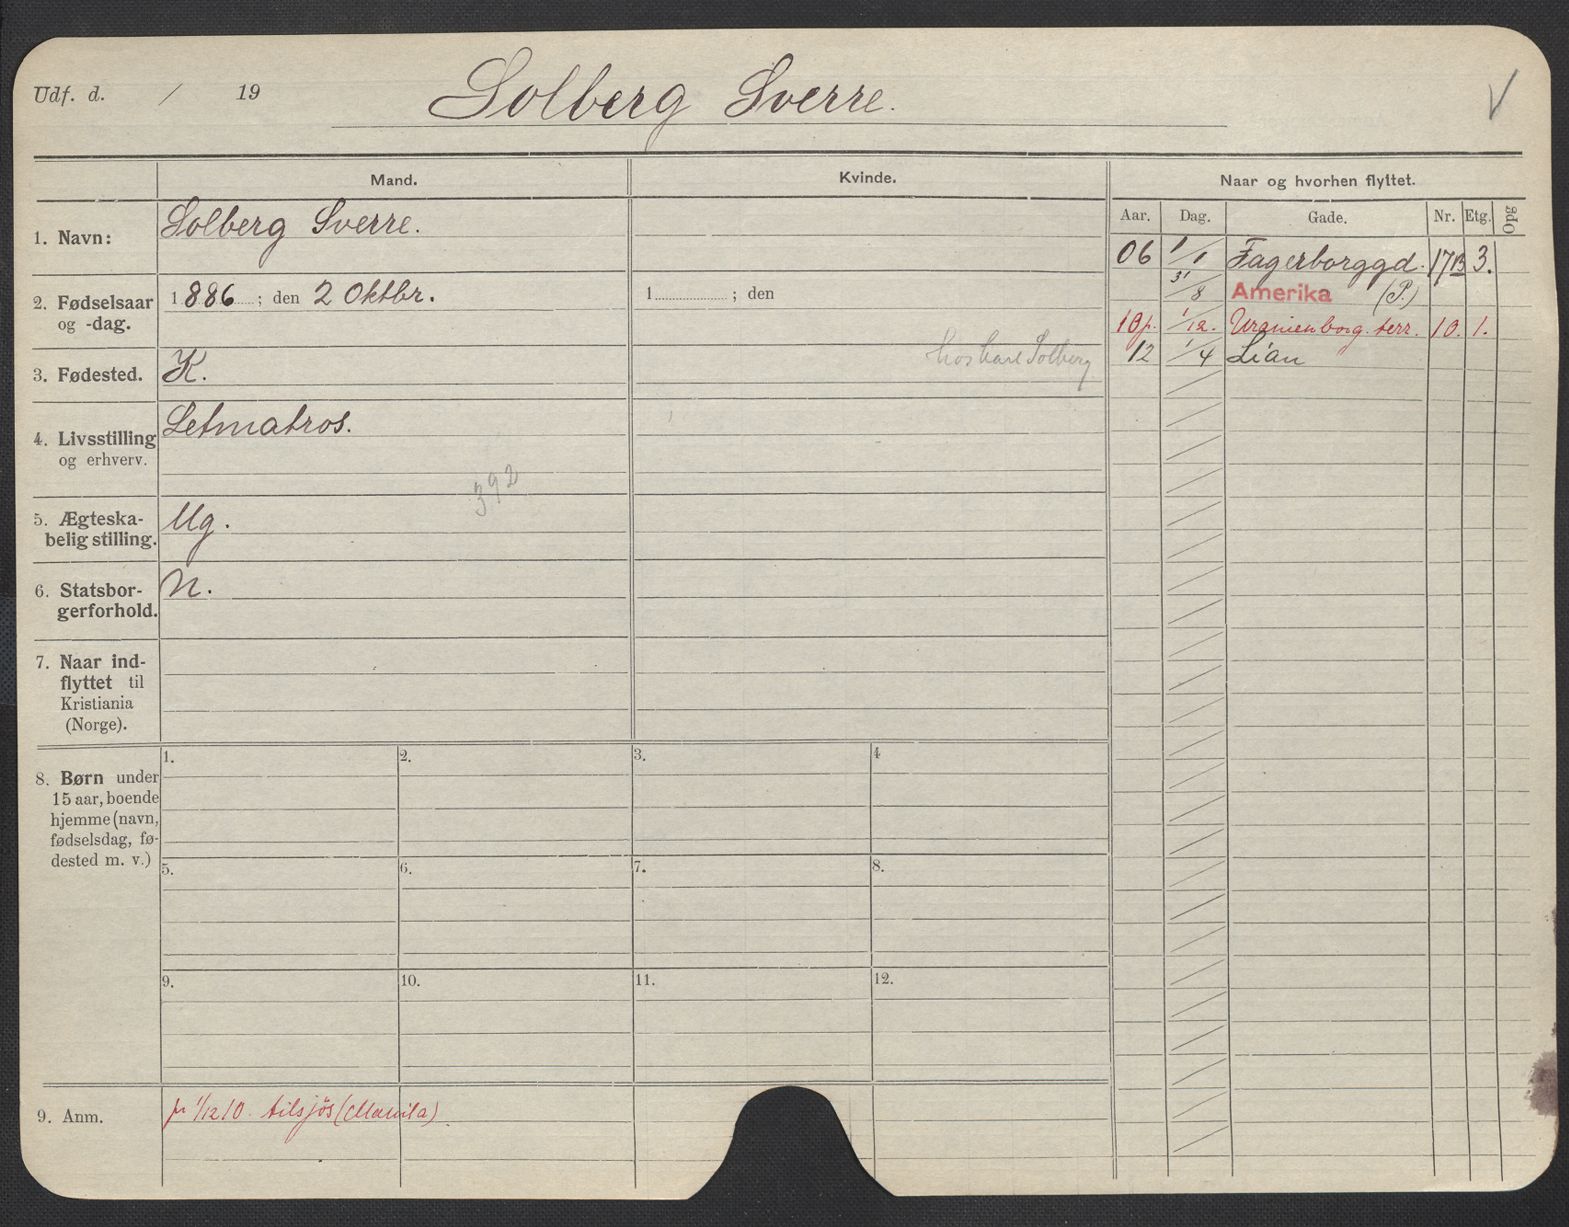 Udf. d. / 19
Solberg Sverre.
V
Mand.
Kvinde.
Naar og hvorhen flyttet.
Aar. Dag. Gade. Nr. Etg. Opg
1. Navn:
Solberg Sverre.
06 1/1 Fagerborggd. 17 B 3.
31/8 Amerika (P.)
10 p. 1/12. Uranienborg. terr. 10. 1.
12 1/4 Lian
2. Fødselsaar
og -dag.
1886 ; den 2 Oktbr.
1 ; den
3. Fødested.
K.
hos Carl Solberg
4. Livsstilling
og erhverv.
Letmatros.
392
5. Ægteska-
belig stilling.
Ug.
6. Statsbor-
gerforhold.
N.
7. Naar ind-
flyttet til
Kristiania
(Norge).
8. Børn under
15 aar, boende
hjemme (navn,
fødselsdag, fø-
dested m. v.)
1. 2. 3. 4
5. 6. 7. 8.
9. 10. 11. 12.
9. Anm.
pr 1/12 10. tilsjös (Manila)